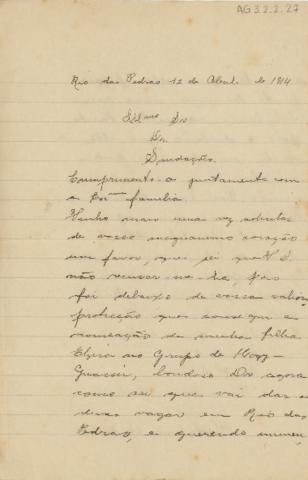 AG 3.2.2.27
Rio das Pedras 12 de Abril de 1914
Illmo Sr
Dr.
Saudações.
Cumprimento-o juntamente com
a Exma familia.
Venho mais uma vez solicitar
de vosso magnanimo coração
um favor, que sei que V S
não recusar
foi debaixo de vossa valiosa
protecção que consegui a
nomeação de minha filha
Elyira no Grupo de Mogy-
Guassú, bondoso Dr agora
como sei que vai dar-se
duas vagas em Rio das
Pedras, e querendo